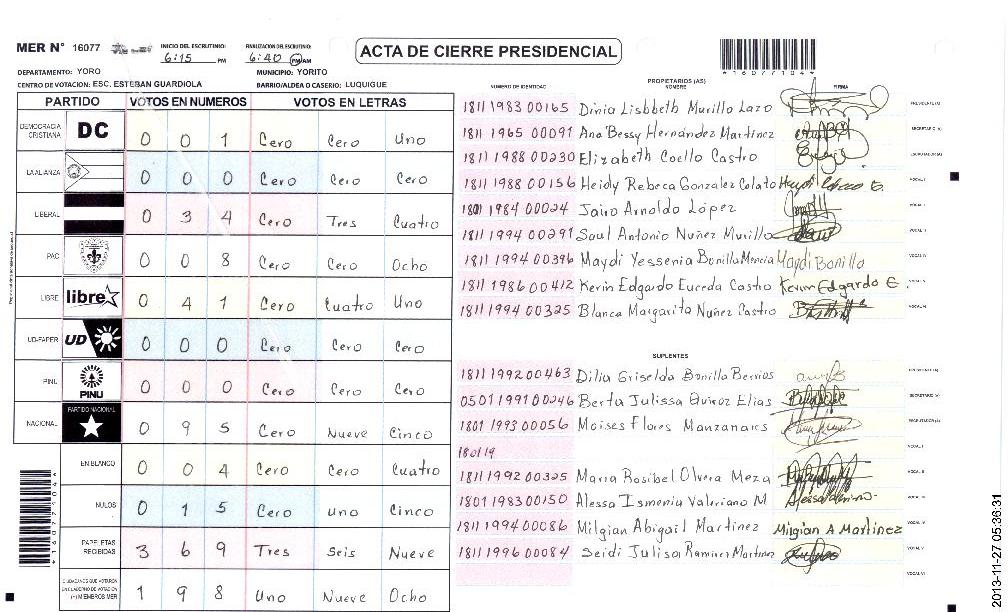 MER N° 16077
INICIO DEL ESCRUTINIO: 6:15 PM
FINALIZACION DEL ESCRUTINIO: 6:40 PM AM
ACTA DE CIERRE PRESIDENCIAL
*16077104*
DEPARTAMENTO: YORO
MUNICIPIO: YORITO
CENTRO DE VOTACION: ESC. ESTEBAN GUARDIOLA
BARRIO/ALDEA O CASERIO: LUQUIGUE
PARTIDO VOTOS EN NUMEROS VOTOS EN LETRAS
DEMOCRACIA CRISTIANA DC 0 0 1 Cero Cero Uno
LA ALIANZA 0 0 0 Cero Cero Cero
LIBERAL 0 3 4 Cero Tres Cuatro
PAC 0 0 8 Cero Cero Ocho
LIBRE libre 0 4 1 Cero Cuatro Uno
UD-FAPER UD 0 0 0 Cero Cero Cero
PINU PINU 0 0 0 Cero Cero Cero
NACIONAL PARTIDO NACIONAL 0 9 5 Cero Nueve Cinco
EN BLANCO 0 0 4 Cero Cero Cuatro
NULOS 0 1 5 Cero uno Cinco
PAPELETAS RECIBIDAS 3 6 9 Tres Seis Nueve
CIUDADANOS QUE VOTARON EN CUADERNO DE VOTACION (+) MIEMBROS MER 1 9 8 Uno Nueve Ocho
NUMERO DE IDENTIDAD PROPIETARIOS (AS) NOMBRE FIRMA
1811 1983 00165 Dinia Lisbbeth Murillo Lazo PRESIDENTE (A)
1811 1965 00091 Ana Bessy Hernández Martínez SECRETARIO (A)
1811 1988 00230 Elizabeth Coello Castro ESCRUTADOR (A)
1811 1988 00156 Heidy Rebeca Gonzalez Colato VOCAL I
1801 1984 00024 Jairo Arnoldo López VOCAL II
1811 1994 00291 Saul Antonio Nuñez Murillo VOCAL III
1811 1994 00396 Maydi Yessenia Bonilla Mencia Maydi Bonilla VOCAL IV
1811 1986 00412 Kerin Edgardo Euceda Castro Kerin Edgardo E. VOCAL V
1811 1994 00325 Blanca Margarita Nuñez Castro VOCAL VI
SUPLENTES
1811 1992 00463 Dilia Griselda Bonilla Berrios PRESIDENTE (A)
0501 1991 00246 Berta Julissa Quiroz Elias SECRETARIO (A)
1801 1993 00056 Moises Flores Manzanares ESCRUTADOR (A)
1801 19 VOCAL I
1811 1992 00325 Maria Rosibel Olvera Meza VOCAL II
1801 1983 00150 Alessa Ismenia Valeriano M VOCAL III
1811 1994 00086 Milgian Abigail Martinez Milgian A Martinez VOCAL IV
1811 1996 00084 Seidi Julisa Ramirez Martinez VOCAL V
VOCAL VI
*16077104*
2013-11-27 05:36:31